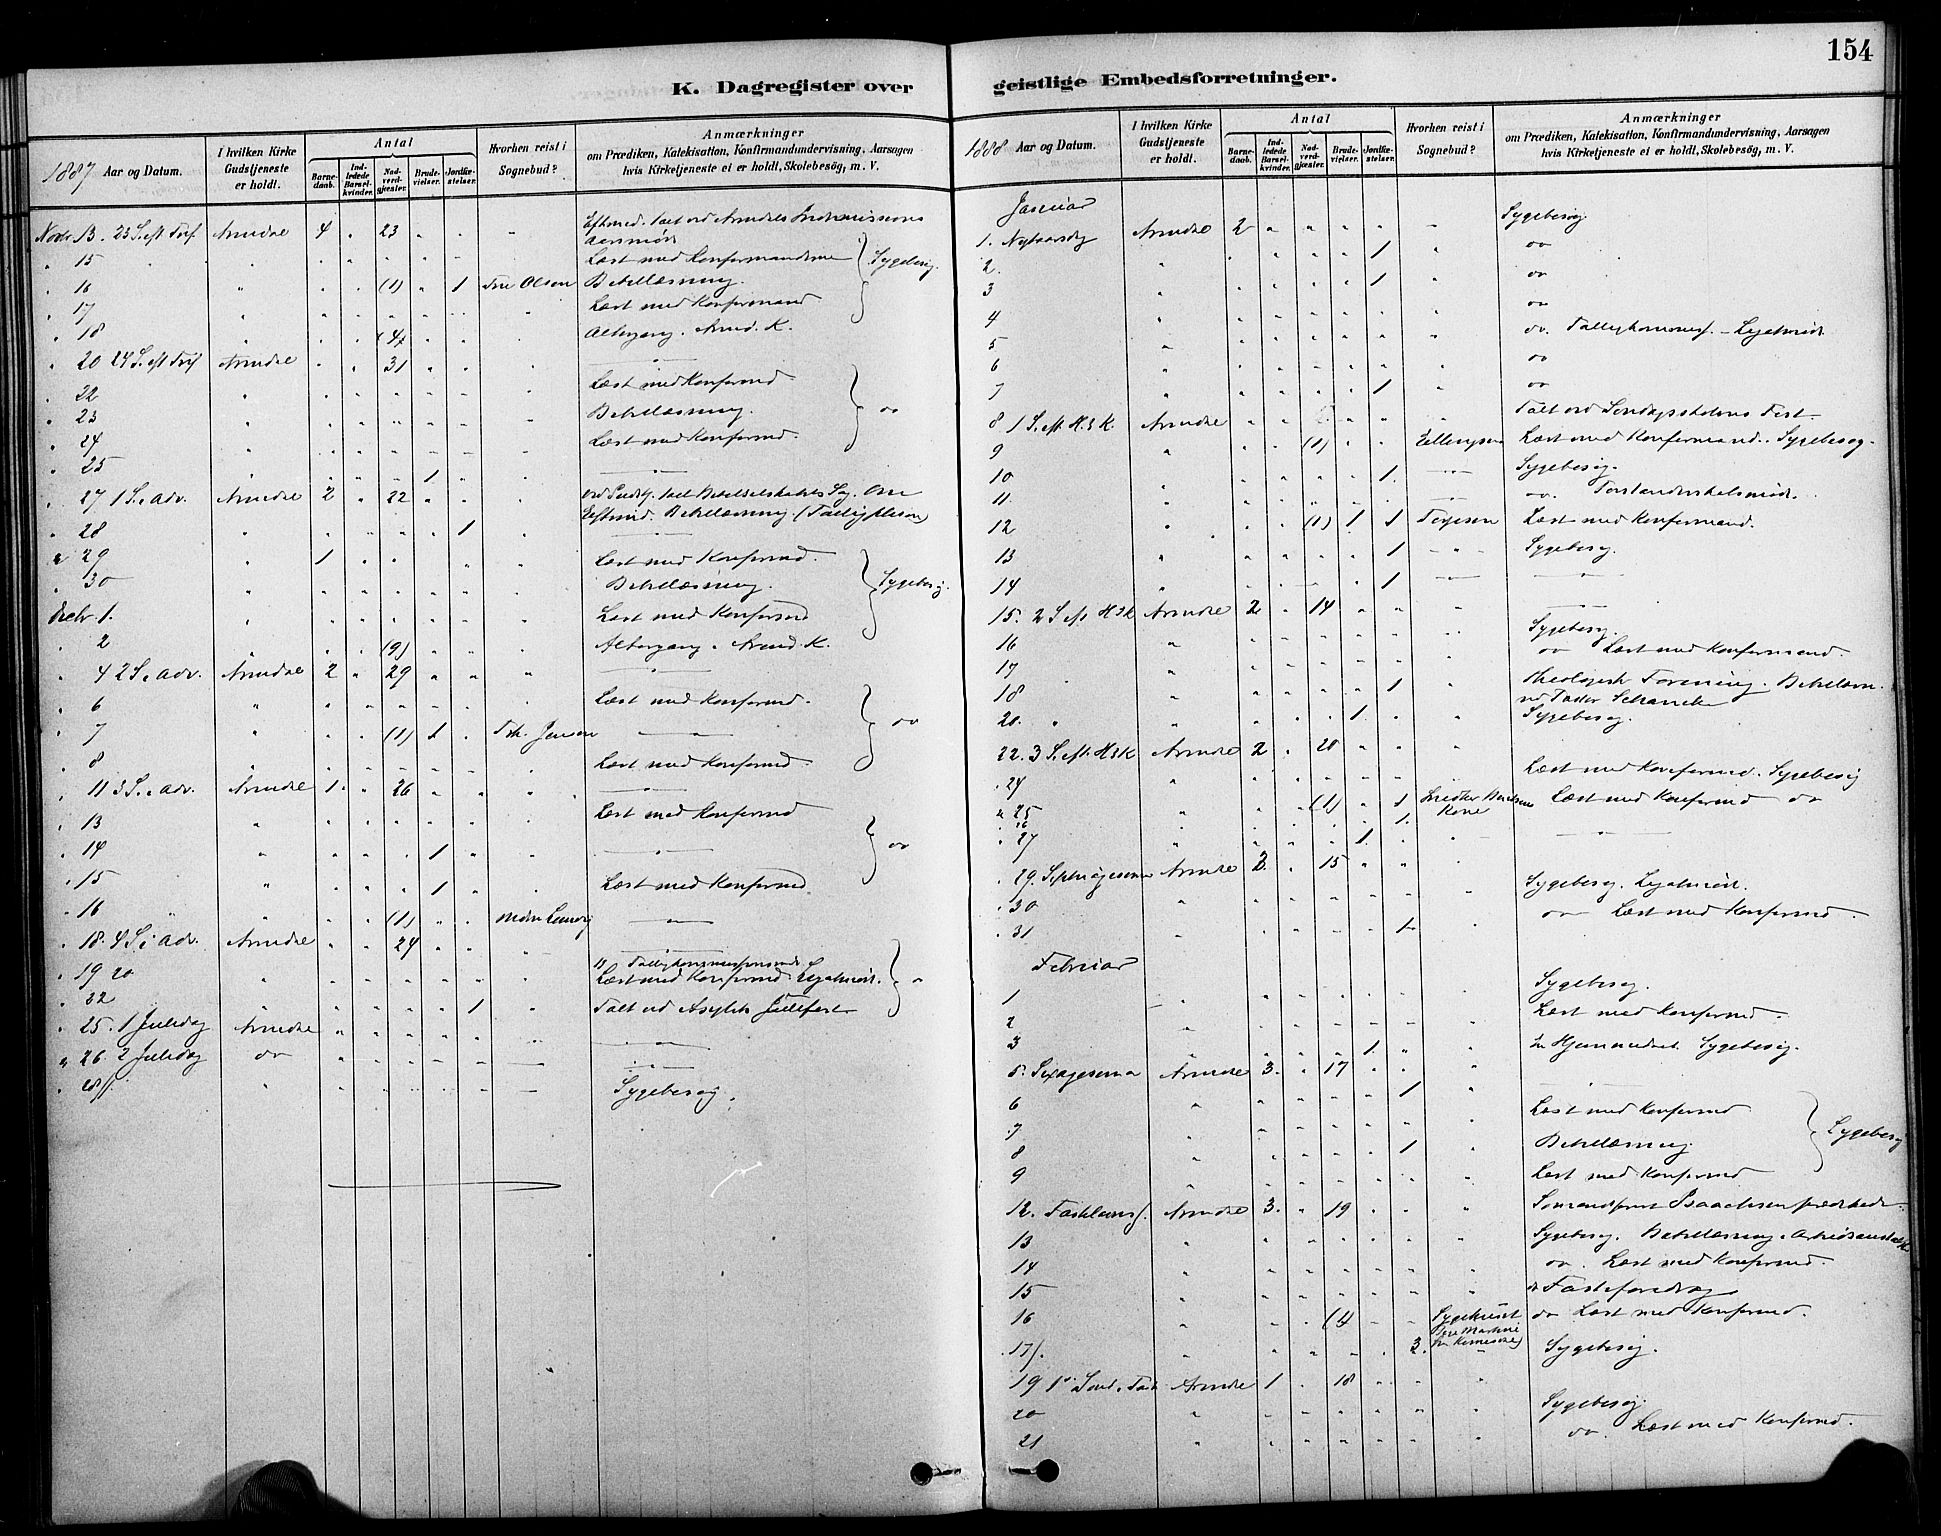 154
K. Dagregister over
geistlige Embedsforretninger.
1887 Aar og Datum.
I hvilken Kirke Gudstjeneste er holdt.
Antal
Barnedaab.
Indledede Barselkvinder.
Nadverdgjester.
Brudevielser.
Jordfæstelser.
Hvorhen reist i Sognebud?
Anmærkninger
om Prædiken, Katekisation, Konfirmandundervisning, Aarsagen
hvis Kirketjeneste ei er holdt, Skolebesøg, m. V.
Novbr 13. 23 S. eft Trf Arendal 4 " 23 " " " Eftmid. talt ved Arendals Indremissions
Aarsmøde
" 15 Læst med Konfirmanderne Sygebesøg.
" 16 (1) " 1 Olsen Bibellæsning.
" 17 Læst med Konfirmand
" 18 (4) Altergang. Arend. K.
" 20 24 S. eft Trf Arendal " " 31
" 22 Læst med Konfirmd
" 23 Bibellæsning. do
" 24 Læst med Konfirmd.
" 25 1
" 27 1 S. i Adv. Arendal 2 " 22
Eftmid. Bibellæsning
" 28 1
" 29 1 Læst med Konfirmd.
" 30 Bibellæsning. Sygebesøg.
Decbr 1. Læst med Konfirmd
" 2 (9) Altergang i Arend. K.
" 4 2 S. i Adv. Arendal 2 " 29
" 6 Læst med Konfirmd.
" 7 (1) 1 Jensen do
" 8 Læst med Konfirmd.
" 11 3 S. i Adv. Arendal 1 " 26
" 13 Læst med Konfirmd
" 14 1 do
" 15 1 Læst med Konfirmd
" 16 (1)
" 18. 4 S. i Adv. Arendal " " 24
" 19 20 Læst med Konfirmd. Legatmøde.
" 22 1 Talt ved Asylets Julefest
" 25. 1 Juledag Arendal
" 26. 2 Juledag do
" 28/ Sygebesøg.
1888 Aar og Datum.
I hvilken Kirke Gudstjeneste er holdt.
Antal
Barnedaab.
Indledede Barselkvinder.
Nadverdgjester.
Brudevielser.
Jordfæstelser.
Hvorhen reist i Sognebud?
Anmærkninger
om Prædiken, Katekisation, Konfirmandundervisning, Aarsagen
hvis Kirketjeneste ei er holdt, Skolebesøg, m. V.
Januar
1. Nytaarsdag Arendal 2 Sygebesøg
2. 1 do
3 1 do
4 do
5 do. Fattigkommis. - Legatmøde
6 do
7 1 do
8 1 S. eft. H.3K. Arendal Talt ved Søndagsskolens Fest.
9 (1) Ellingsen Læst med Konfirmand. Sygebesøg.
10 1 Sygebesøg.
11 do. Forstanderskabsmøde.
12 (1) 1 1 Terjesen Læst med Konfirmand.
13 1 Sygebesøg.
14 1
15. 2 S. eft H3K Arendal 2 " 14
16 Sygebesøg.
17 do Læst med Konfirmand.
18 1 Theologisk Forening. Bibellæsn.
ved Pastor Schanche
20. 1 Sygebesøg.
22. 3 S. eft. H3K Arendal 2 " 20
24 Læst med Konfirmd. Sygebesøg
25 (1) " 1 Kone Læst med Konfirmd do
26 1.
27 1
29. Septuagesima Arendal 2. " 15
30 Sygebesøg. Legatmøde.
31 1 do Læst med Konfirmd.
Februar
1 Sygebesøg.
2 Læst med Konfirmd.
3 1 Sygebesøg.
5. Sexagesima Arendal 3. " 17
6 1
7 Læst med Konfirmd
8 1 Bibellæsning. Sygebesøg
9 Læst med Konfirmd
12. Fastelavns/. Arendal 3. " 19 Sømandsprest Isaachsen prædikede.
13 Sygebesøg. Bibellæsning i Arbeidsanstalten
14 do. Læst med Konfirmd.
15 do Fasteforedrag
16 (4) Sygehuset do Læst med Konfirmd.
17/. 2. Sygebesøg.
19 1ste Sønd. i Fast Arendal 1 " 18
20 Sygebesøg.
21 do. Læst med Konfirmd.